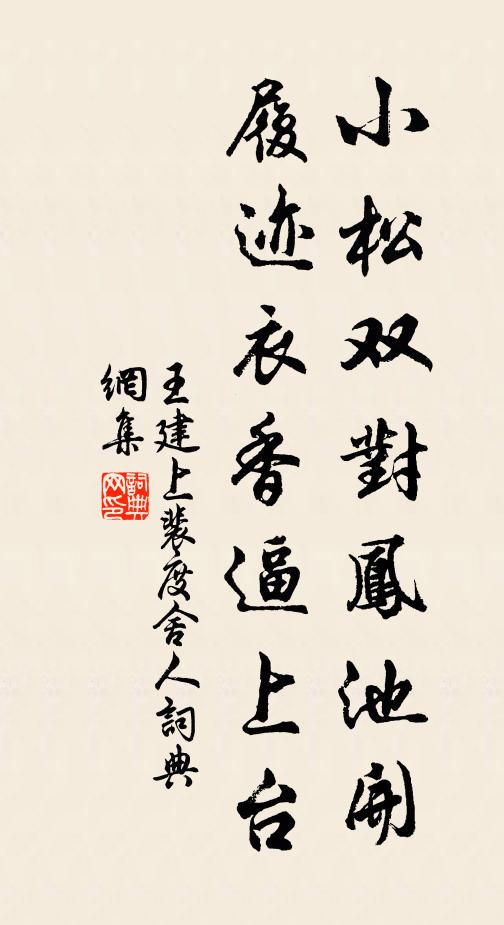 小松双對鳳池開
履迹衣香逼上台
王建上裴度舍人詞典
網集
詞典网印